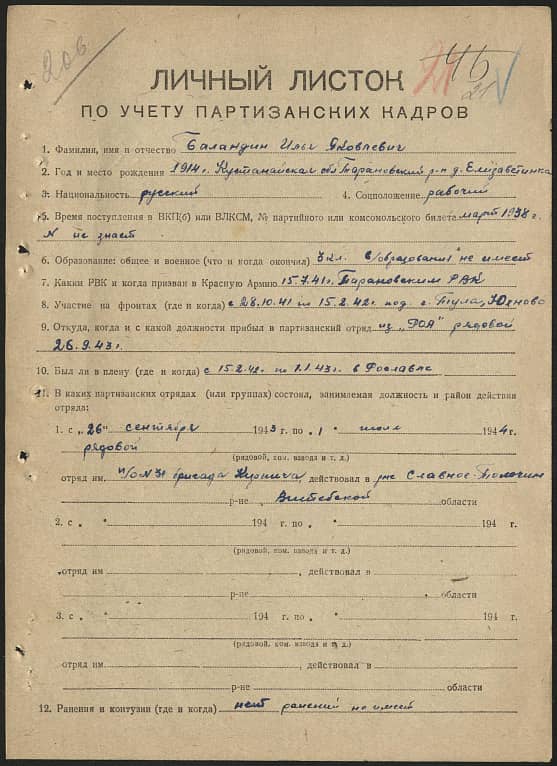 206
21 46
21
ЛИЧНЫЙ ЛИСТОК
ПО УЧЕТУ ПАРТИЗАНСКИХ КАДРОВ
1. Фамилия, имя и отчество Баландин Илья Яковлевич
2. Год и место рождения 1914 г. Кустанайская обл Тарановский р-н д. Елизаветинка
3. Национальность русский 4. Соцположение рабочий
5. Время поступления в ВКП(б) или ВЛКСМ, № партийного или комсомольского билета март 1938 г.
N не знает
6. Образование: общее и военное (что и когда окончил) 3 кл. В/образования не имеет
7. Каким РВК и когда призван в Красную Армию 15.7.41 г. Тарановским РВК
8. Участие на фронтах (где и когда) с 28.10.41 по 15.2.42 г. под г. Тула, Юхново
9. Откуда, когда и с какой должности прибыл в партизанский отряд из „РОА" рядовой
26.9.43 г.
10. Был ли в плену (где и когда) с 15.2.42 по 1.1.43 г в Рославле
11. В каких партизанских отрядах (или группах) состоял, занимаемая должность и район действия
отряда:
1. с „26" сентября 1943 г. по „1 " июля 1944 г.
рядовой
(рядовой, ком. взвода и т. д.)
отряд им п/о N 31 бригада действовал в р-не Славное-Толочин
р-не Витебской области
2. с „ " 194 г. по „ " 194 г.
(рядовой, ком. взвода и т. д.)
отряд им , действовал в
р-не области
3. с „ " 194 г. по „ " 194 г.
(рядовой, ком. взвода и т. д.)
отряд им , действовал в
р-не области
12. Ранения и контузии (где и когда) нет ранений не имеет